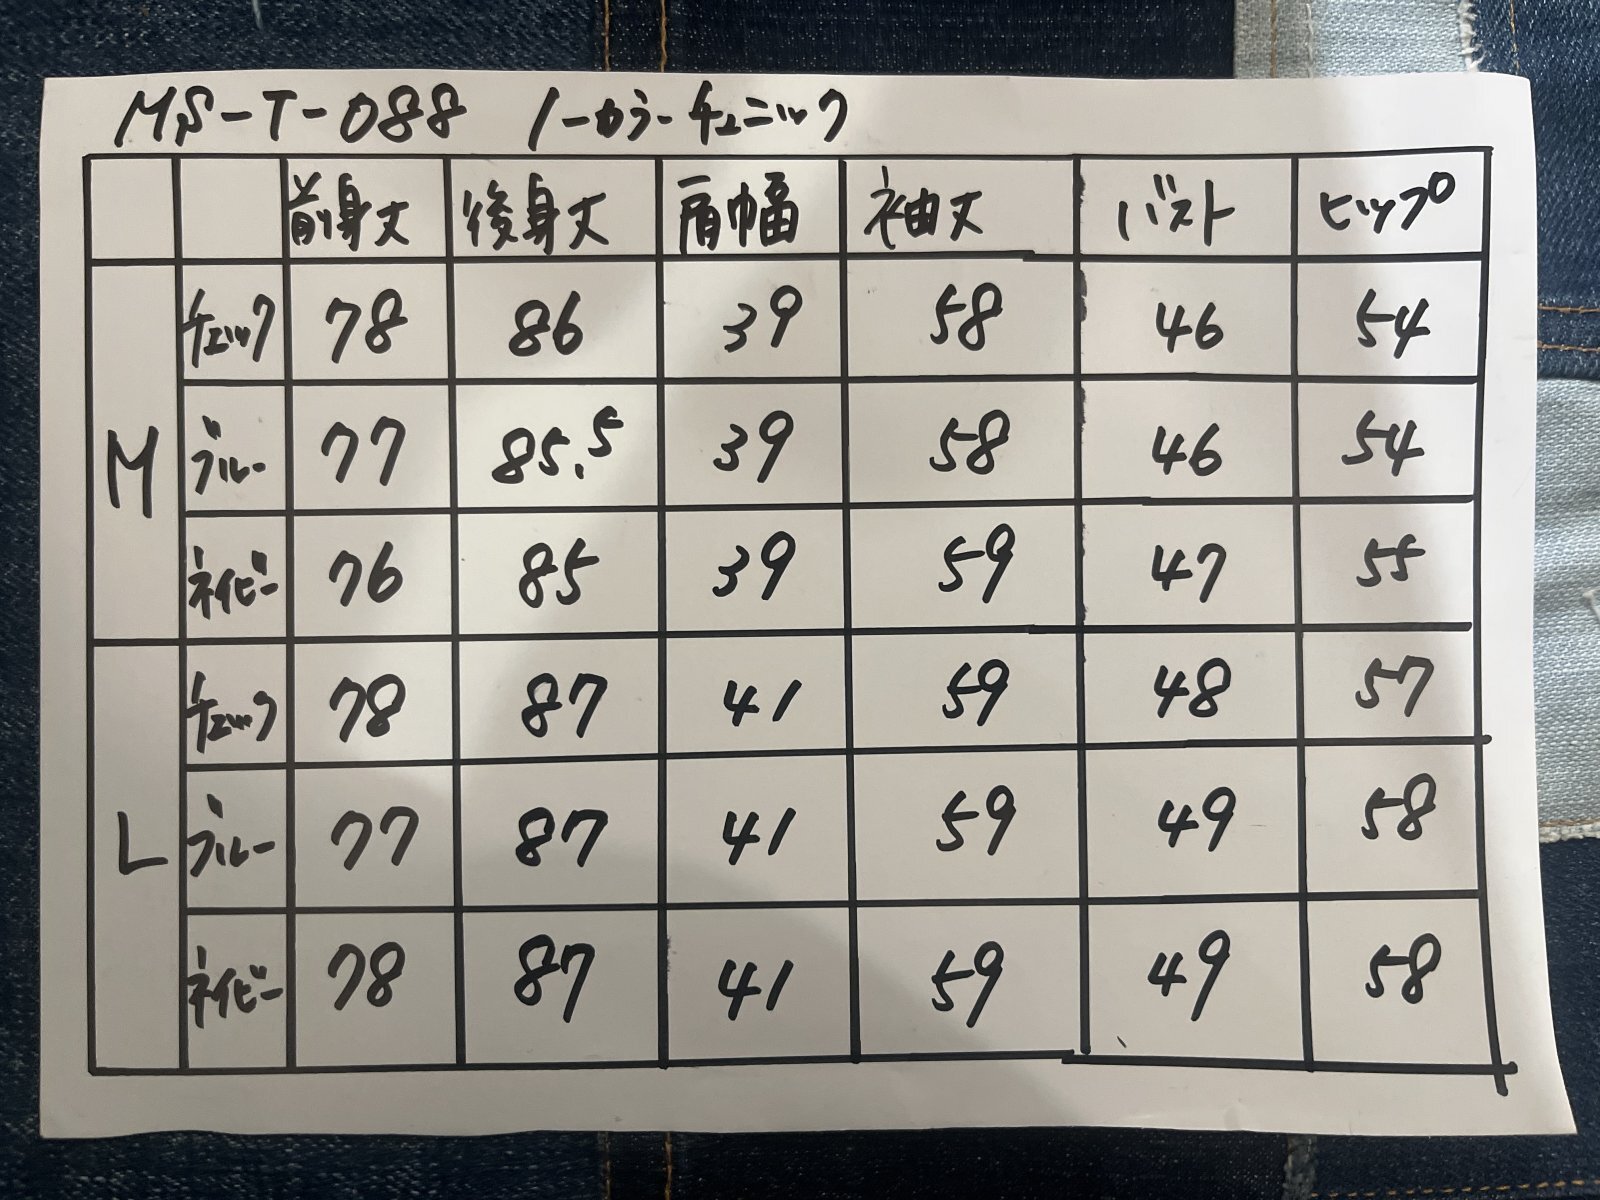 MS-T-088 ノーカラーチュニック
前身丈 後身丈 肩幅 袖丈 バスト ヒップ
M
チェック 78 86 39 58 46 54
ブルー 77 85.5 39 58 46 54
ネイビー 76 85 39 59 47 55
L
チェック 78 87 41 59 48 57
ブルー 77 87 41 59 49 58
ネイビー 78 87 41 59 49 58